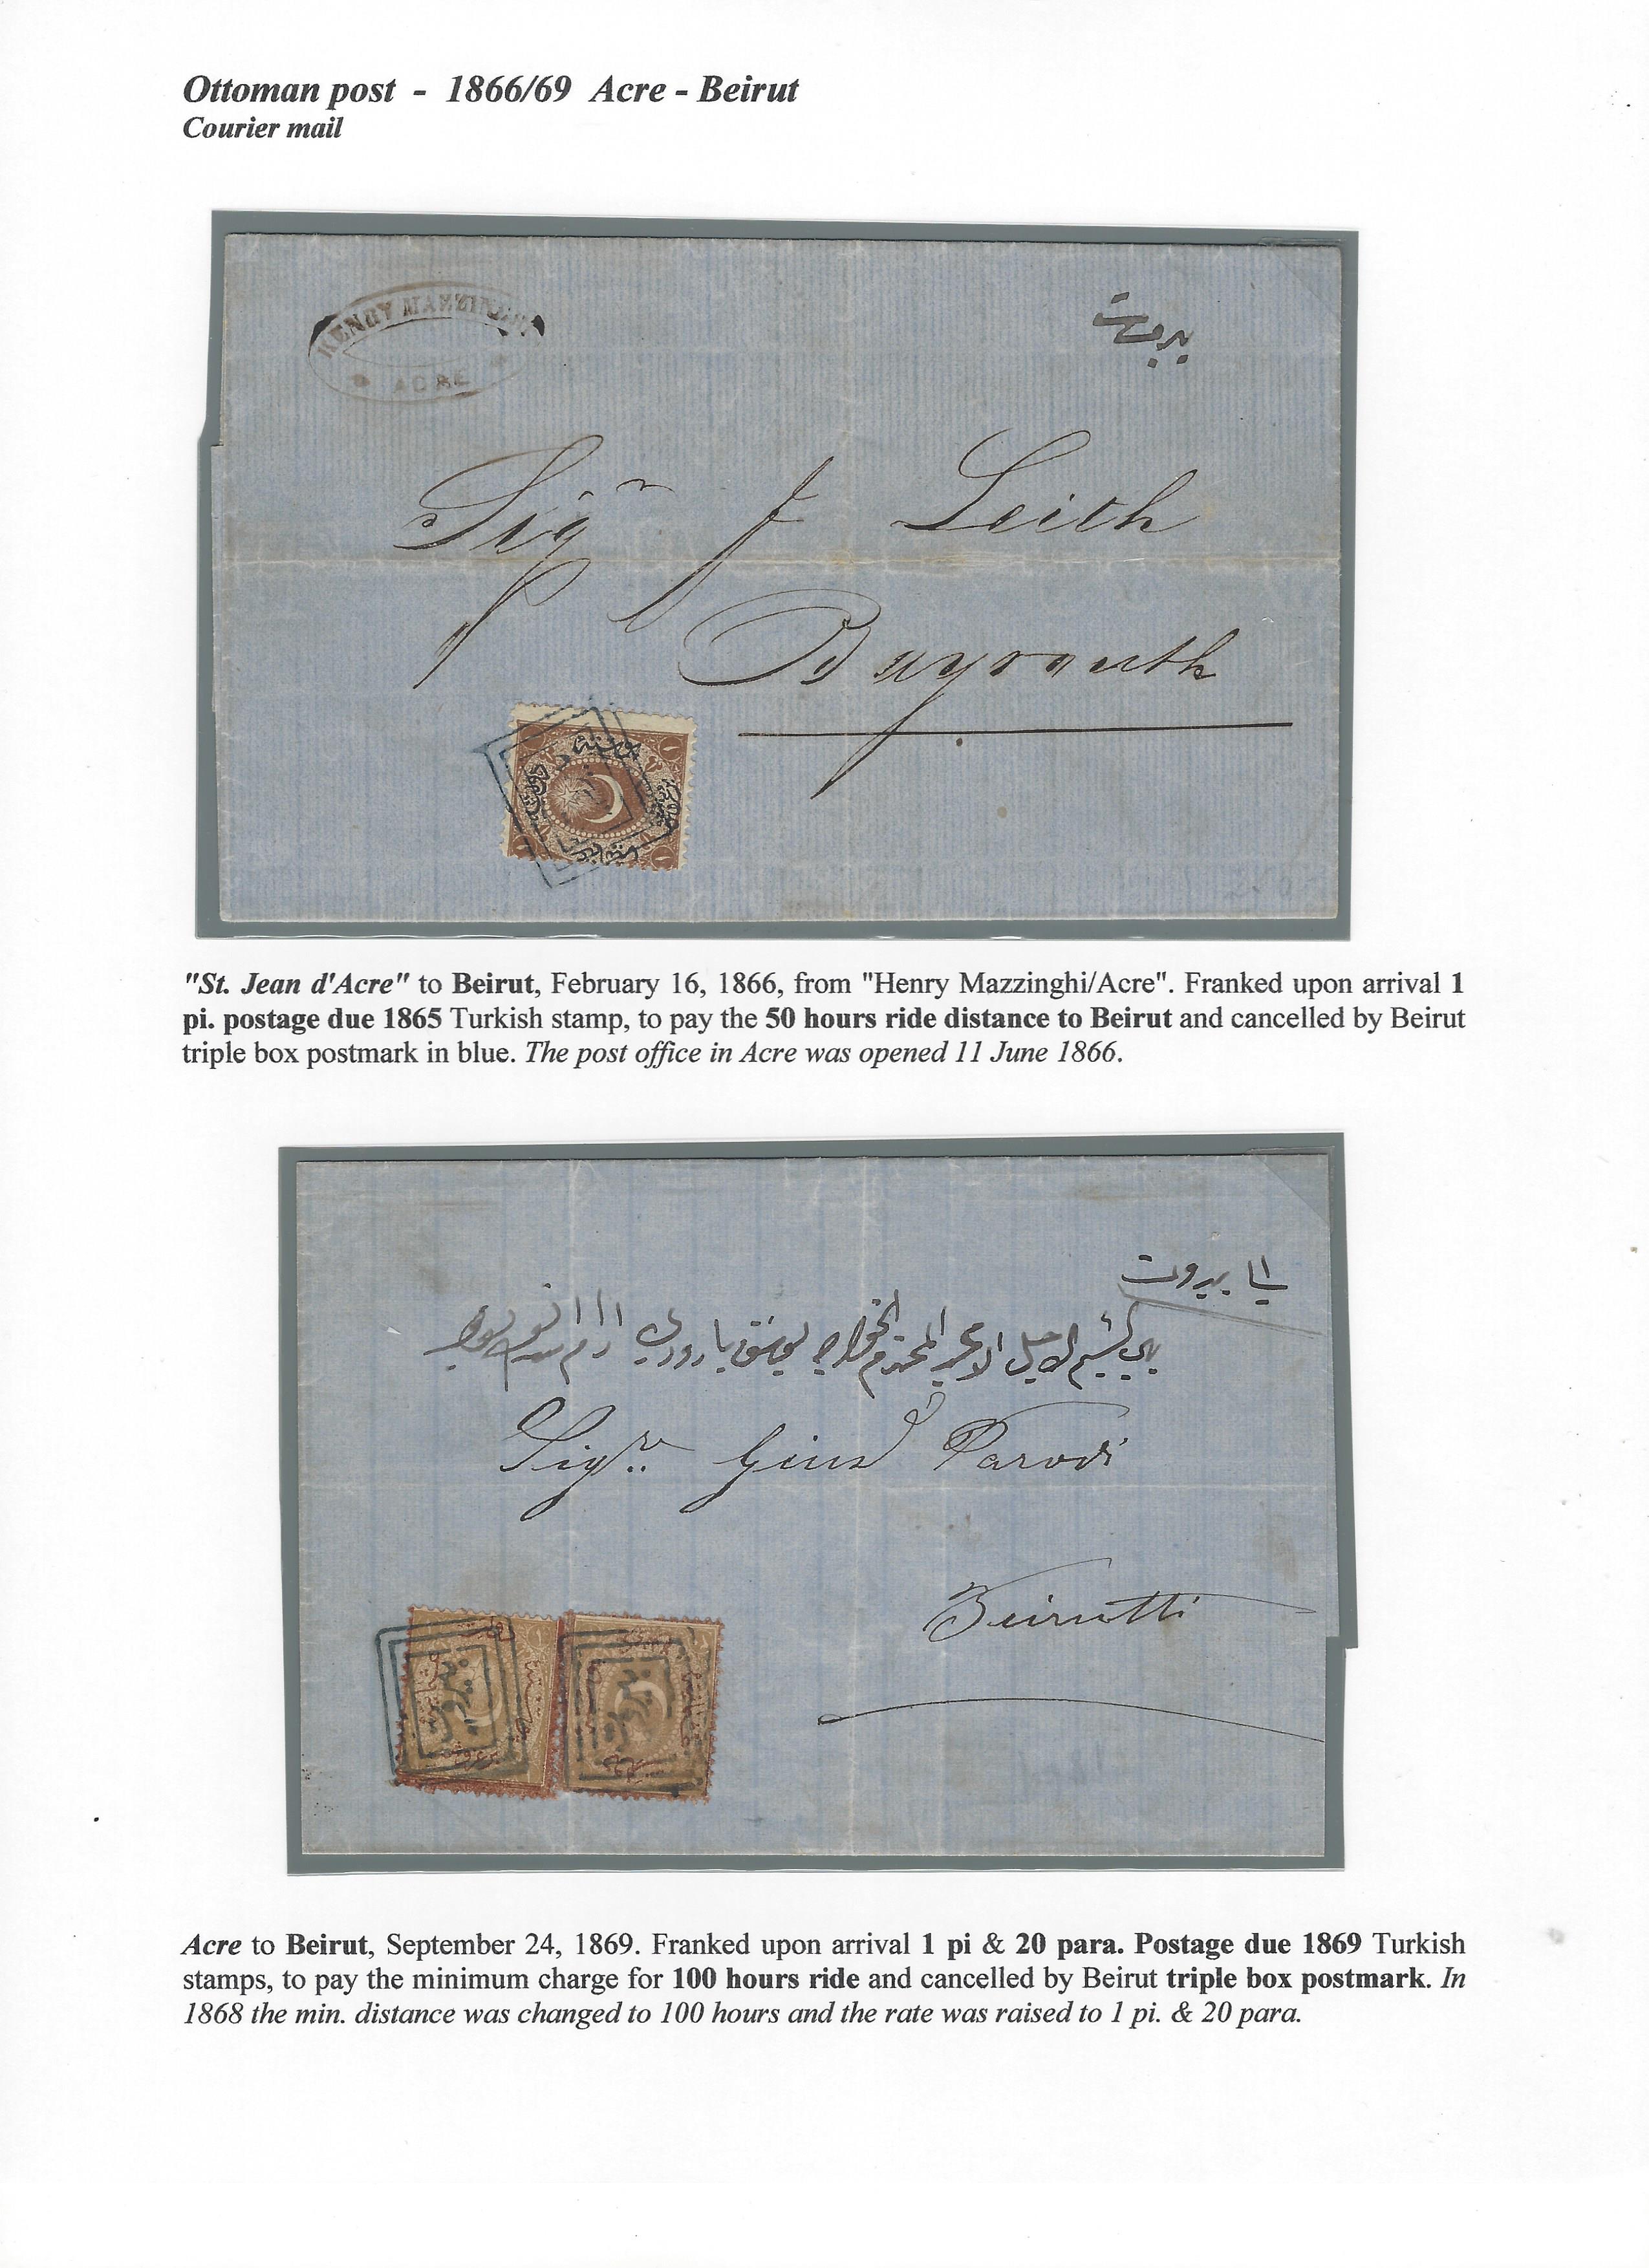 Ottoman post - 1866/69 Acre - Beirut
Courier mail
HENRY MAZZINGHI
ACRE
بيروت
Sigr J Leith
Bayrouth
"St. Jean d'Acre" to Beirut, February 16, 1866, from "Henry Mazzinghi/Acre". Franked upon arrival 1
pi. postage due 1865 Turkish stamp, to pay the 50 hours ride distance to Beirut and cancelled by Beirut
triple box postmark in blue. The post office in Acre was opened 11 June 1866.
الى بيروت
الاجل الامجد المحترم الخواجه يوسف بارودي
Sigr. Gius Parodi
Beirutti
بيروت
بيروت
Acre to Beirut, September 24, 1869. Franked upon arrival 1 pi & 20 para. Postage due 1869 Turkish
stamps, to pay the minimum charge for 100 hours ride and cancelled by Beirut triple box postmark. In
1868 the min. distance was changed to 100 hours and the rate was raised to 1 pi. & 20 para.